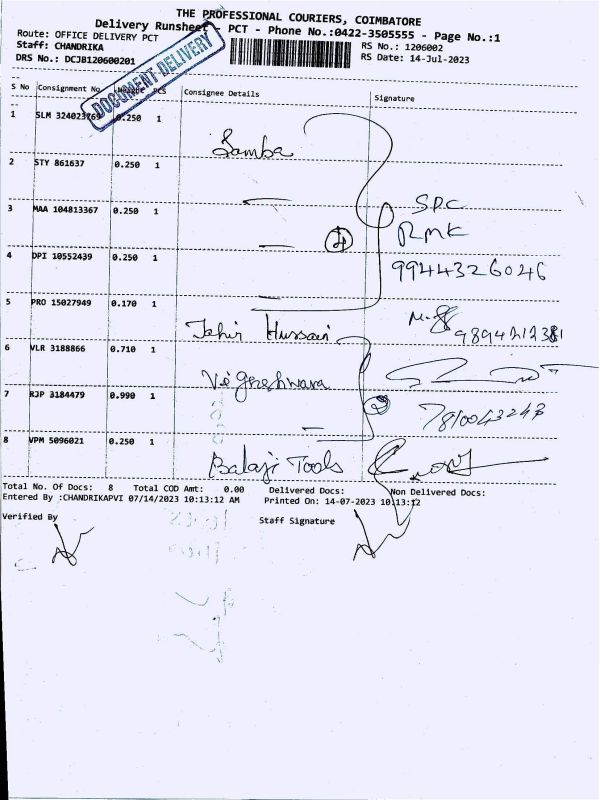 THE PROFESSIONAL COURIERS, COIMBATORE
Delivery Runsheet - PCT - Phone No.:0422-3505555 - Page No.:1
Route: OFFICE DELIVERY PCT
RS No.: 1206002
Staff: CHANDRIKA
RS Date: 14-Jul-2023
DRS No.: DCJB120600201
DOCUMENT DELIVERY
S No Consignment No. Weight PCS Consignee Details Signature
1 SLM 324023769 0.250 1 Samba
2 STY 861637 0.250 1
3 MAA 104813367 0.250 1 SPC
RMK
4 DPI 10552439 0.250 1 4 9944326046
5 PRO 15027949 0.170 1 Tahir Hussain
6 VLR 3188866 0.710 1
7 RJP 3184479 0.990 1 2 7810043247
8 VPM 5096021 0.250 1 Balaji Tools
Total No. Of Docs: 8 Total COD Amt: 0.00 Delivered Docs: Non Delivered Docs:
Entered By :CHANDRIKAPVI 07/14/2023 10:13:12 AM Printed On: 14-07-2023 10:13:12
Verified By Staff Signature